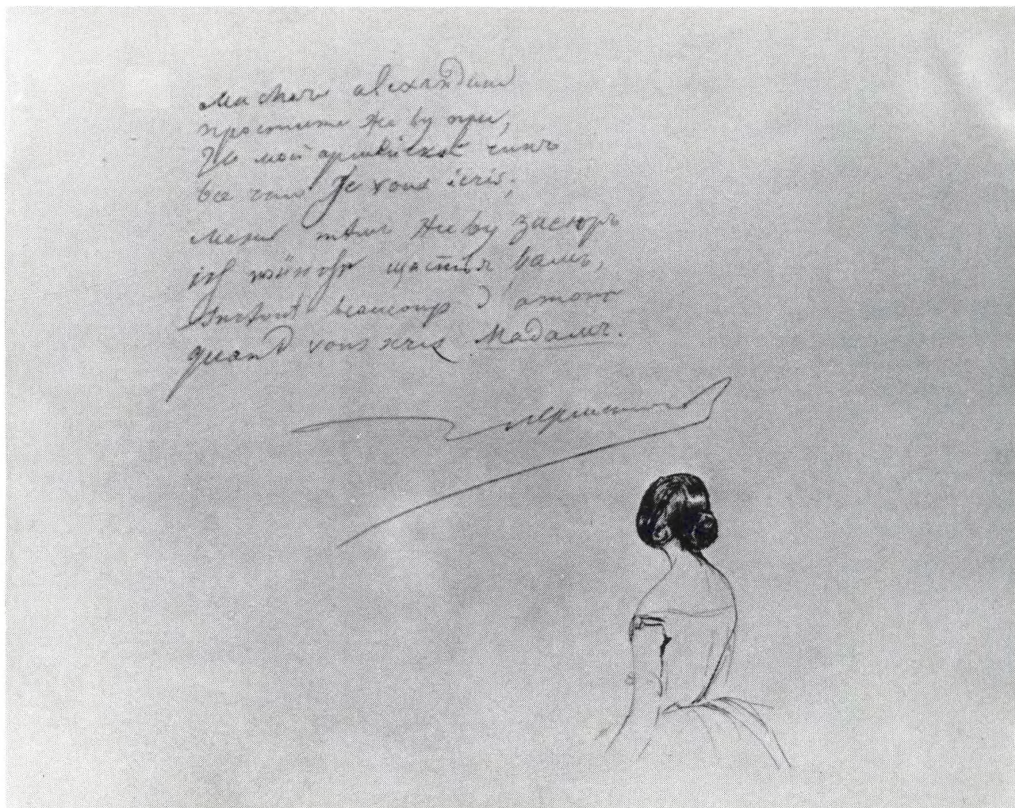 Ma chere alexandrine
простите же ву при,
За мой армейскій чинъ
все что Je vous ecris;
Межъ тѣмъ же ву засюръ
ich wünsche щастья вамъ,
Surtout beaucoup d'amour
quand vous serez Мадамъ.
Лермонтовъ